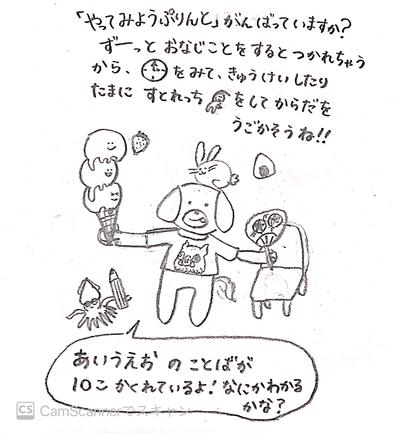 「やってみようぷりんと」がんばっていますか？
ずーっと おなじことをするとつかれちゃう
から、をみて、きゅうけいしたり
たまに すとれっちをしてからだを
うごかそうね!!
あいうえお のことばが
10こ かくれているよ！なにかわかる
かな？
CS CamScannerでスキャン